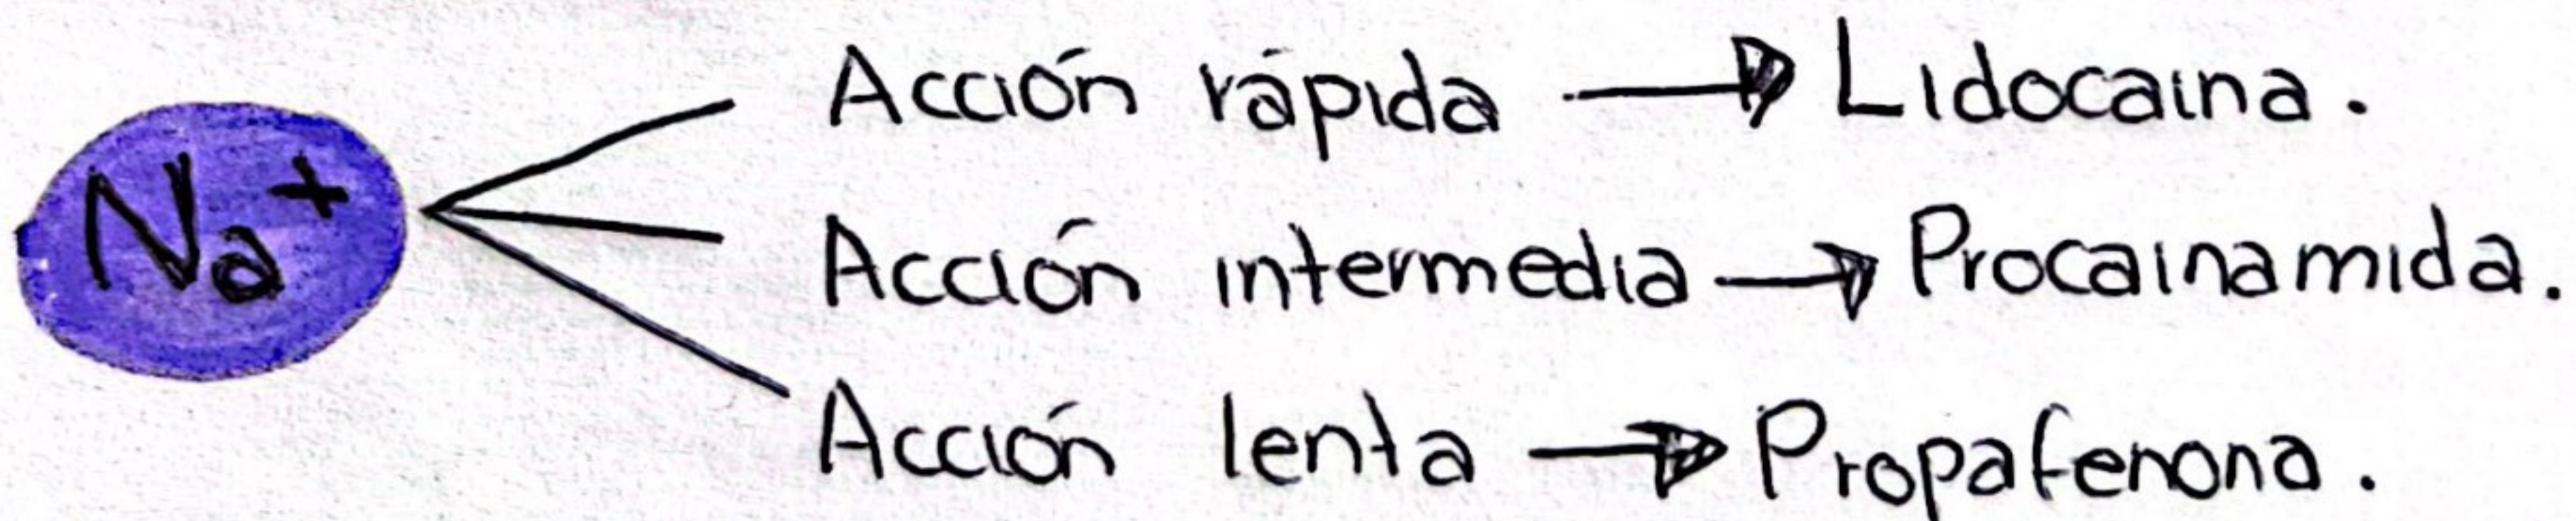 Na+
Acción rápida → Lidocaina.
Acción intermedia → Procainamida.
Acción lenta → Propafenona.